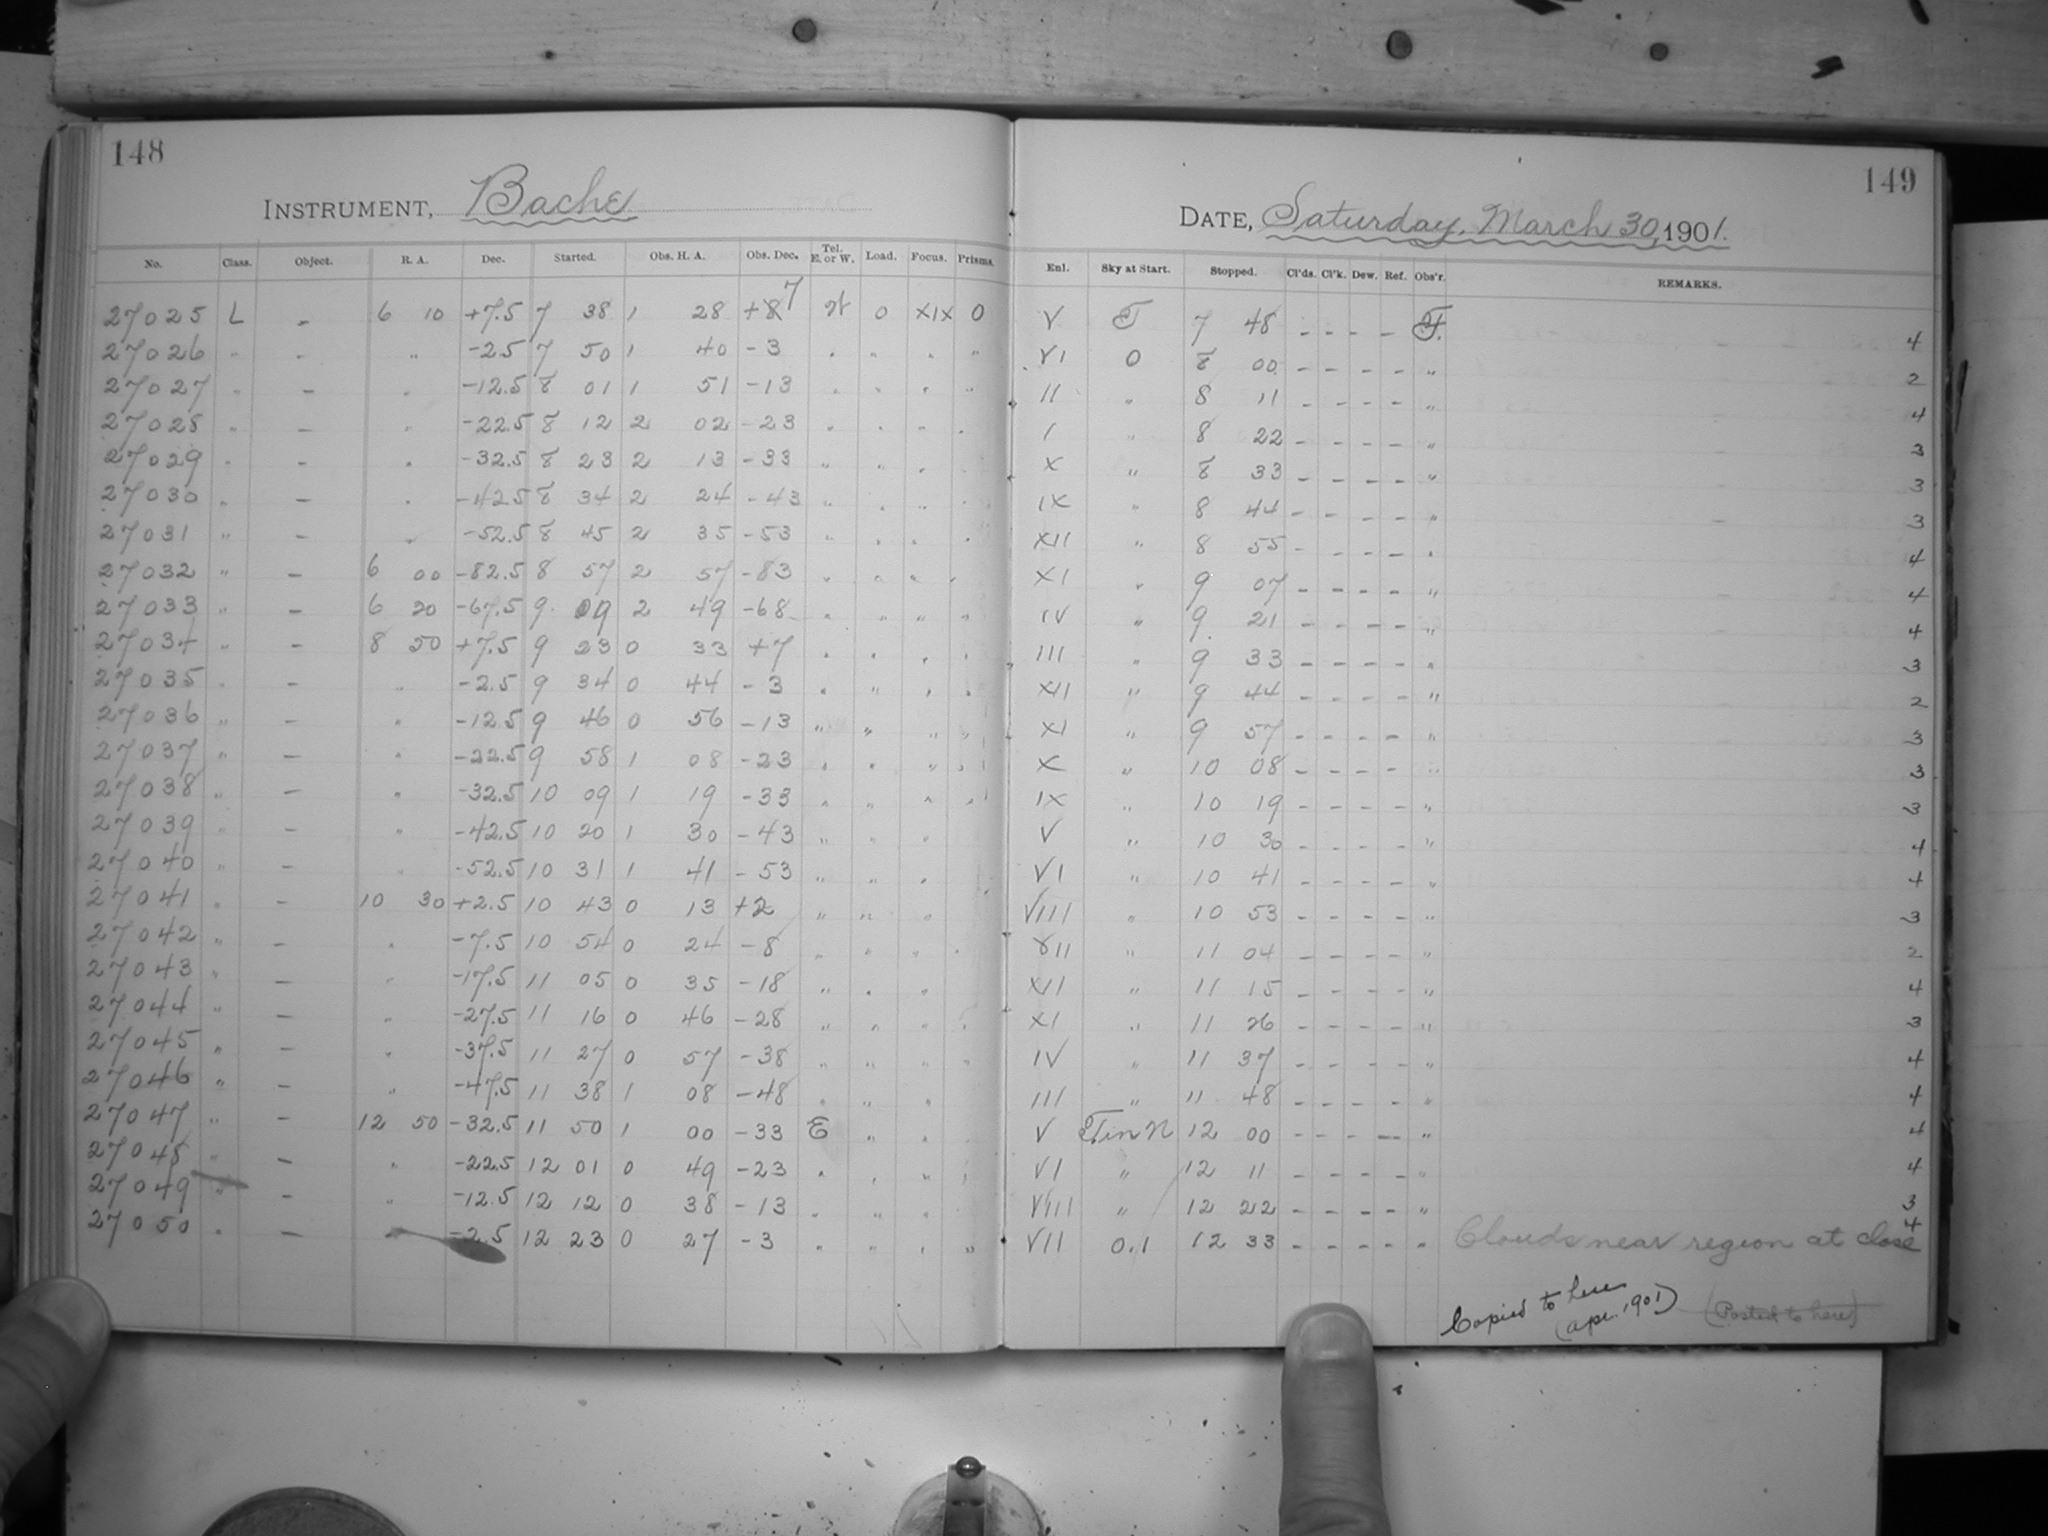 148
149
INSTRUMENT, Bache
DATE, Saturday, March 30, 1901.
No. Class. Object. R. A. Dec. Started. Obs. H. A. Obs. Dec. Tel. E. or W. Load. Focus. Prisms. Enl. Sky at Start. Stopped. Cl'ds. Cl'k. Dew. Ref. Obs'r. REMARKS.
27025 L - 6 10 +7.5 7 38 1 28 +8 7 W 0 XIX 0 V 7 48 - - - - F. 4
27026 " - " -2.5 7 50 1 40 -3 " " " " VI 0 8 00 - - - - " 2
27027 " - " -12.5 8 01 1 51 -13 " " " " II " 8 11 - - - - " 4
27028 " - " -22.5 8 12 2 02 -23 " " " " I " 8 22 - - - - " 3
27029 " - " -32.5 8 23 2 13 -33 " " " " X " 8 33 - - - - " 3
27030 " - " -42.5 8 34 2 24 -43 " " " " IX " 8 44 - - - - " 3
27031 " - " -52.5 8 45 2 35 -53 " " " " XII " 8 55 - - - - " 4
27032 " - 6 00 -82.5 8 57 2 57 -83 " " " " XI " 9 07 - - - - " 4
27033 " - 6 20 -67.5 9 09 2 49 -68 " " " " IV " 9 21 - - - - " 4
27034 " - 8 50 +7.5 9 23 0 33 +7 " " " " III " 9 33 - - - - " 3
27035 " - " -2.5 9 34 0 44 -3 " " " " XII " 9 44 - - - - " 2
27036 " - " -12.5 9 46 0 56 -13 " " " " XI " 9 57 - - - - " 3
27037 " - " -22.5 9 58 1 08 -23 " " " " X " 10 08 - - - - " 3
27038 " - " -32.5 10 09 1 19 -33 " " " " IX " 10 19 - - - - " 3
27039 " - " -42.5 10 20 1 30 -43 " " " V " 10 30 - - - - " 4
27040 " - " -52.5 10 31 1 41 -53 " " " " VI " 10 41 - - - - " 4
27041 " - 10 30 +2.5 10 43 0 13 +2 " " " VIII " 10 53 - - - - " 3
27042 " - " -7.5 10 54 0 24 -8 " " " " VII " 11 04 - - - - " 2
27043 " - " -17.5 11 05 0 35 -18 " " " XII " 11 15 - - - - " 4
27044 " - " -27.5 11 16 0 46 -28 " " " " XI " 11 26 - - - - " 3
27045 " - " -37.5 11 27 0 57 -38 " " " " IV " 11 37 - - - - " 4
27046 " - " -47.5 11 38 1 08 -48 " " " III " 11 48 - - - - " 4
27047 " - 12 50 -32.5 11 50 1 00 -33 E " " " V F in N 12 00 - - - - " 4
27048 " - " -22.5 12 01 0 49 -23 " " " " VI " 12 11 - - - - " 4
27049 " - " -12.5 12 12 0 38 -13 " " " VIII " 12 22 - - - - " 3
27050 " - " -2.5 12 23 0 27 -3 " " " " VII 0.1 12 33 - - - - " Clouds near region at close 4
Copied to here (Posted to here)
(apr. 1901)